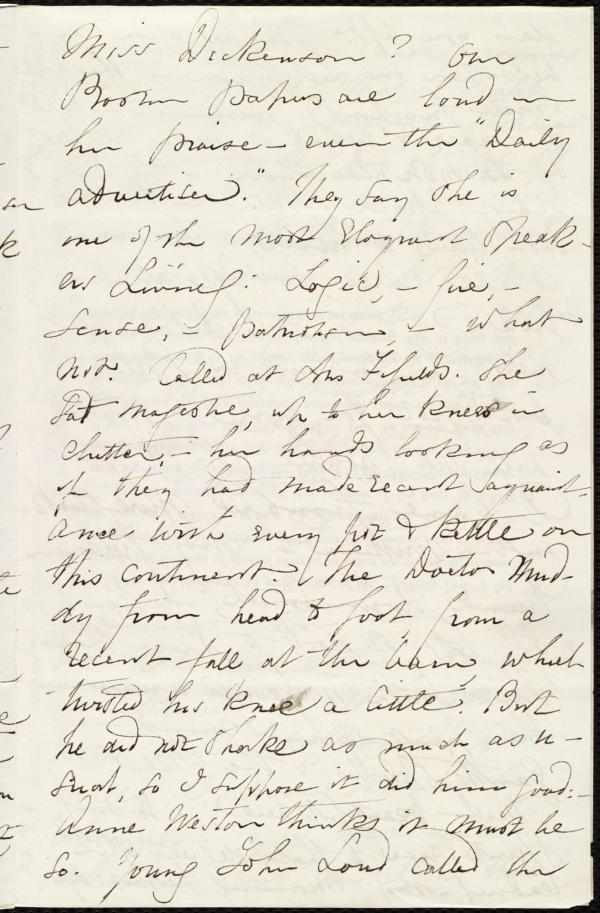 Miss Dickenson? Our
Boston papers are loud in
her praise - even the "Daily
Advertiser." They say she is
one of the most Eloquent Speak-
ers Living: Logic, - fire, -
Sense, - patriotism, - what
not. Called at Mrs Fifields. She
Sat majestic, up to her knees in
clutter, - her hands looking as
if they had made recent acquaint-
ance with every pot & kettle on
this continent. The Doctor Mud-
dy from head to foot, from a
recent fall at the barn, which
twisted his knee a little. But
he did not shake as much as u-
sual, so I suppose it did him good. -
Anne Weston thinks it must be
so. Young John Loud called the